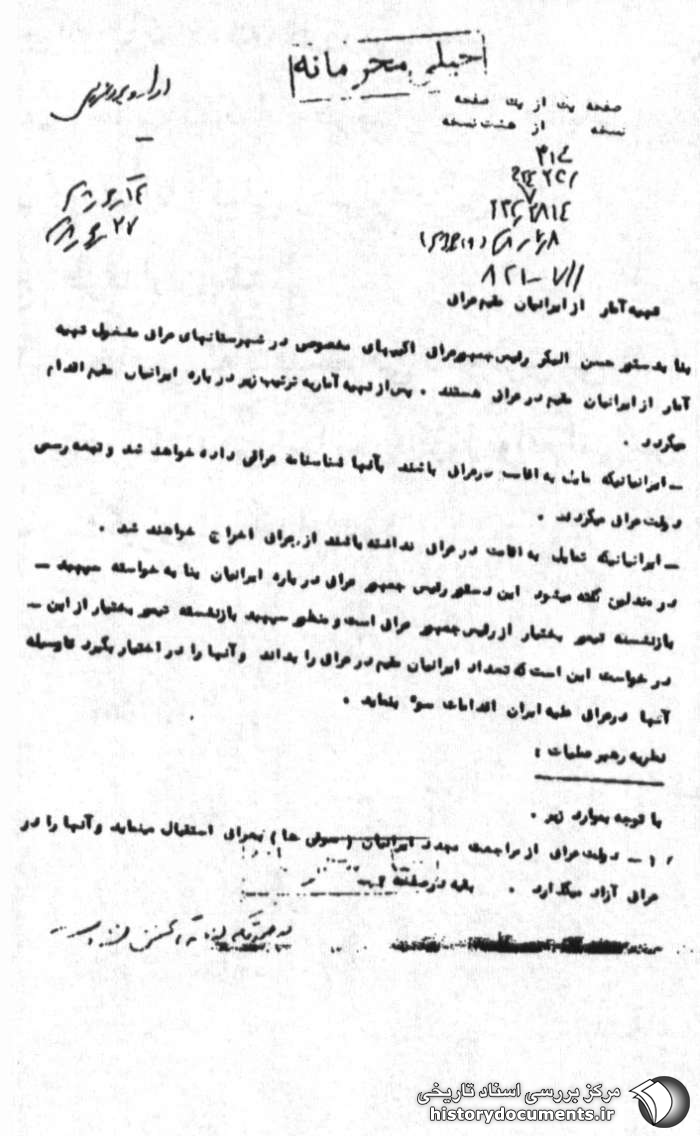 خیلی محرمانه
صفحه یک از یک صفحه
نسخه از هشت نسخه
تهیه آمار از ایرانیان مقیم عراق
بنا بدستور حسن البکر رئیس جمهور عراق اکیپهای مخصوص در شهرستانهای عراق مشغول تهیه
آمار از ایرانیان مقیم در عراق هستند . پس از تهیه آمار به ترتیب زیر درباره ایرانیان مقیم اقدام
میگردد .
ـ ایرانیانیکه مایل به اقامت درعراق باشند بآنها شناسنامه عراقی داده خواهد شد و تبعه رسمی
دولت عراق میگردند .
ـ ایرانیانیکه تمایل به اقامت در عراق نداشته باشند از عراق اخراج خواهند شد .
در مندلی گفته میشود این دستور رئیس جمهور عراق درباره ایرانیان بنا به خواسته سپهبد ـ
بازنشسته تیمور بختیار از رئیس جمهور عراق است و منظور سپهبد بازنشسته تیمور بختیار از این ـ
درخواست این است که تعداد ایرانیان مقیم در عراق را بداند و آنها را در اختیار بگیرد تا وسیله
آنها درعراق علیه ایران اقدامات سوء بنماید .
نظریه رهبر عملیات :
با توجه بموارد زیر .
۱ ـ دولت عراق از مراجعت مجدد ایرانیان ( ها ) بعراق استقبال مینماید و آنها را در
عراق آزاد میگذارد . بقیه در صفحه
مرکز بررسی اسناد تاریخی
historydocuments.ir